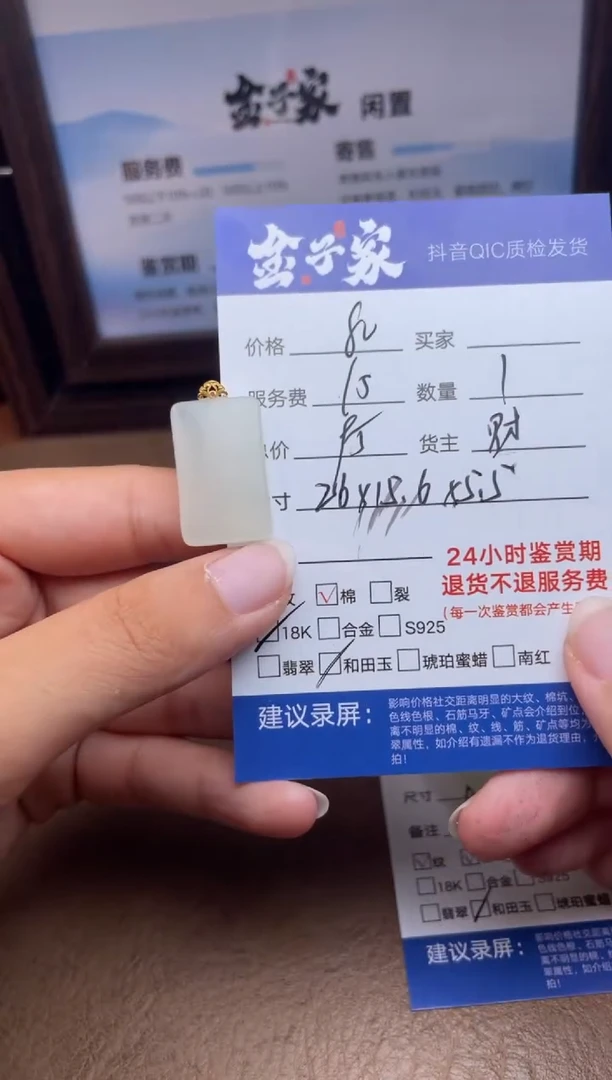 金子家 闲置
服务费
寄售
鉴赏期
金子家 抖音QIC质检发货
价格 买家
服务费 15 数量 1
价 货主 财
寸 26x18.6x5.5
24小时鉴赏期
退货不退服务费
(每一次鉴赏都会产生
棉 裂
18K 合金 S925
翡翠 和田玉 琥珀蜜蜡 南红
建议录屏:
影响价格社交距离明显的大纹、棉坑、
色线色根、石筋马牙、矿点会介绍到位,
离不明显的棉、纹、线、筋、矿点等均为
翠属性,如介绍有遗漏不作为退货理由,
拍!
尺寸
备注
纹
18K 合金 S925
翡翠 和田玉 琥珀蜜蜡
建议录屏:
影响价格社交距离
色线色根、石筋
离不明显的棉、
翠属性,如介绍
拍!